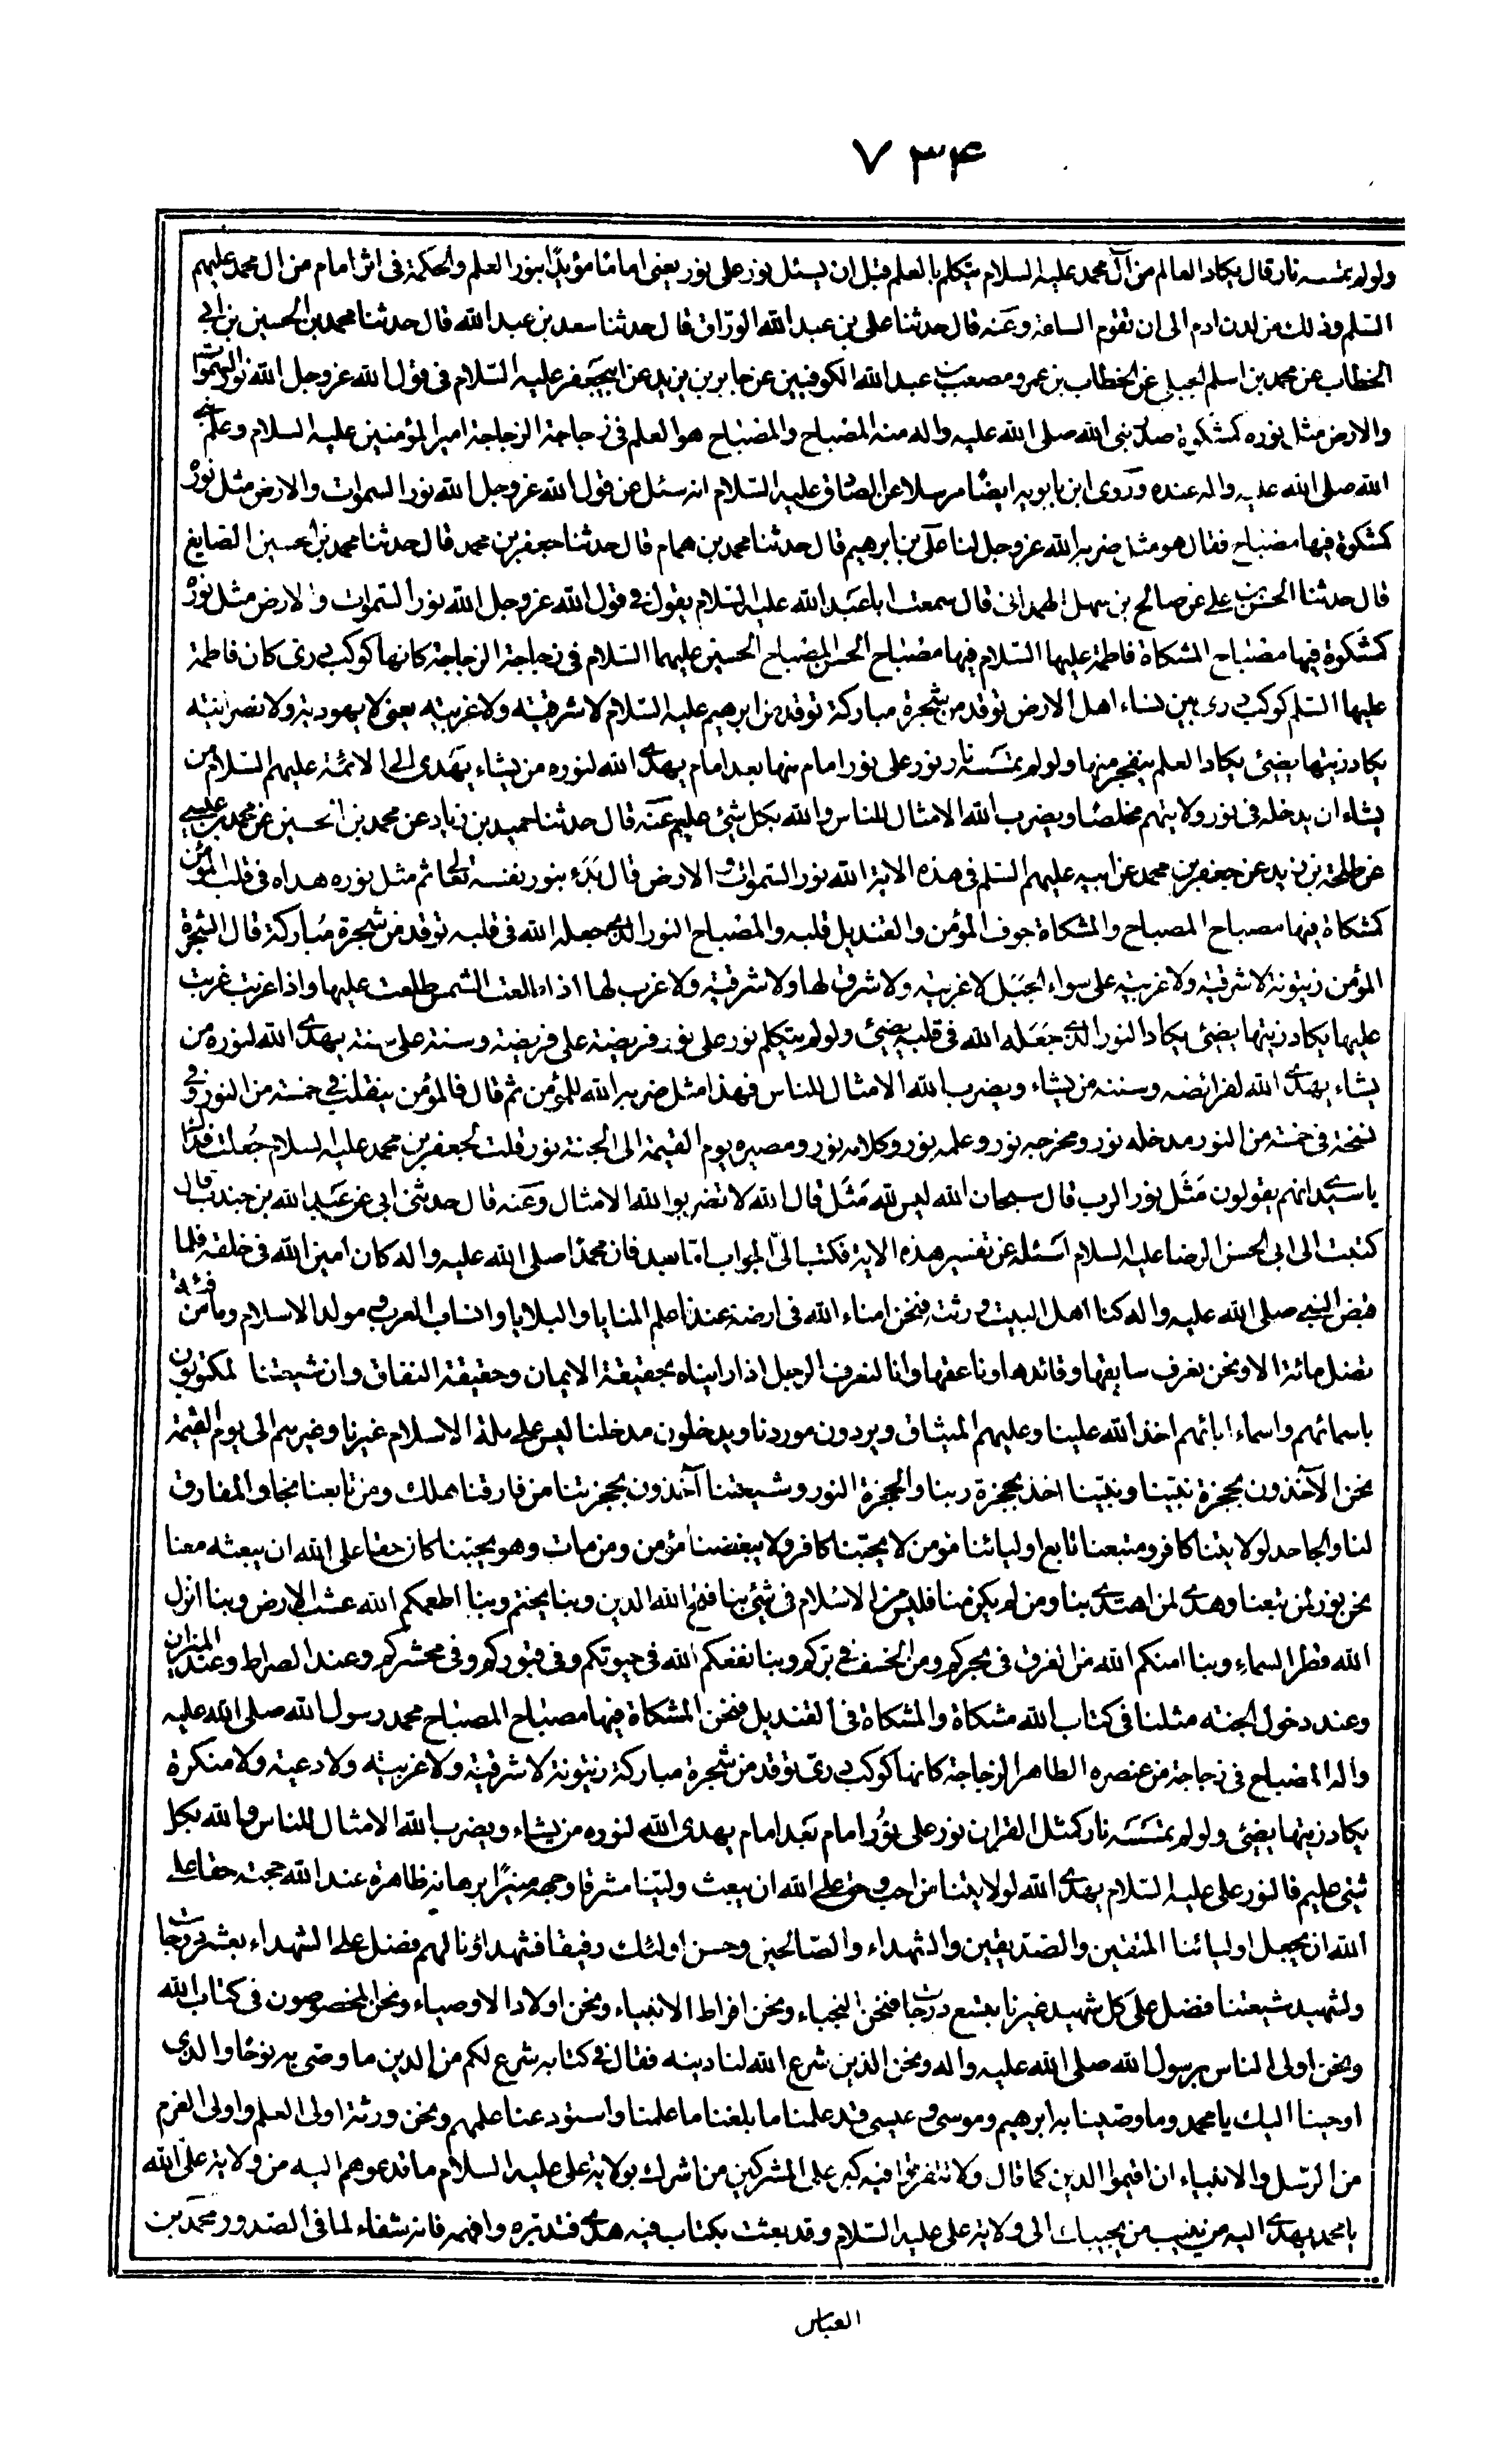 ۷۳۴
ولو لم تمسسه نار قال يكاد العالم من آل محمد عليه السلام يتكلم بالعلم قبل ان يسئل نور على نور يعنى اماما مؤيدا بنور العلم والحكمة فى اثر امام من ال محمد عليهم
السّلم وذلك من لدن ادم الى ان تقوم الساعة وعنه قال حدثنا على بن عبد الله الورّاق قال حدثنا سعد بن عبد الله قال حدثنا محمد بن الحسين بن ابى
الخطاب عن محمد بن اسلم الجبلى عن الخطاب بن عمر ومصعب بن عبد الله الكوفيين عن جابر بن يزيد عن ابيجعفر عليه السّلام فى قول الله عز وجل الله نور السموات
والارض مثل نوره كمشكوة صدر نبى الله صلى الله عليه واله منه المصباح والمصباح هو العلم فى زجاجة الزجاجة امير المؤمنين عليه السلام وعلم نبى
الله صلى الله عليه واله عنده وروى ابن بابويه ايضًا مرسلا عن الصادق عليه السّلام انه سئل عن قول الله عز وجل الله نور السموات والارض مثل نوره
كمشكوة فيها مصباح فقال هو مثل ضربه الله عز وجل لنا على بن ابرهيم قال حدثنا محمد بن همام قال حدثنا جعفر بن محمد قال حدثنا محمد بن الحسين الصايغ
قال حدثنا الحسن بن على عن صالح بن سهل الهمدانى قال سمعت ابا عبد الله عليه السّلام يقول فى قول الله عز وجل الله نور السّموات والارض مثل نوره
كمشكوة فيها مصباح المشكاة فاطمة عليها السّلام فيها مصباح الحسن المصباح الحسين عليهما السّلام فى زجاجة الزجاجة كانها كوكب درى كان فاطمة
عليها السّلم كوكب درى بين نساء اهل الارض توقد من شجرة مباركة توقد من ابرهيم عليه السّلام لا شرقية ولا غربية يعنى لا يهودية ولا نصرانية
يكاد زيتها يضئ يكاد العلم ينفجر منها ولو لم تمسسه نار نور على نور امام منها بعد امام يهدى الله لنوره من يشاء يهدى الله الى الائمة عليهم السّلام من
يشاء ان يدخله فى نور ولايتهم مخلصا ويضرب الله الامثال للناس والله بكل شئ عليم عنه قال حدثنا حميد بن زياد عن محمد بن الحسين عن محمد بن عيسى
عن طلحة بن زيد عن جعفر بن محمد عن ابيه عليهم السّلم فى هذه الاية الله نور السّموات والارض قال بَدَء بنور نفسه تعالى ثم مثل نوره هداه فى قلب المؤمن
كمشكاة فيها مصباح المصباح والمشكاة جوف المؤمن والقنديل قلبه والمصباح النور الذى جعله الله فى قلبه توقد من شجرة مباركة قال الشجرة
المؤمن زيتونة لا شرقية ولا غربية على سواء الجبل لا غربية ولا شرق لها ولا شرقية ولا غرب لها اذا طلعت الشمس طلعت عليها واذا غربت غربت
عليها يكاد زيتها يضئ يكاد النور الذى جعله الله فى قلبه يضئ ولو لم يتكلم نور على نور فريضة على فريضة وسنة على سنة يهدى الله لنوره من
يشاء يهدى الله لفرائضه وسننه من يشاء ويضرب الله الامثال للناس فهذا مثل ضربه الله للمؤمن ثم قال فالمؤمن يتقلب فى خمسة من النور
مدخله نور ومخرجه نور وعلمه نور وكلامه نور ومصيره يوم القيمة الى الجنة نور قلت لجعفر بن محمد عليه السلام جُعلت فداك
يا سيدى انهم يقولون مَثَل نور الرب قال سبحان الله ليس لله مَثَل قال الله لا تضربوا لله الامثال وعنه قال حدثنى ابى عن عبد الله بن جندب قال
كتبت الى ابى الحسن الرضا عليه السلام اسئله عن تفسير هذه الاية فكتب الىّ الجواب امّا بعد فان محمدًا صلى الله عليه واله كان امين الله فى خلقه فلما
قبض النبى صلى الله عليه واله كنا اهل البيت ورثته فنحن امناء الله فى ارضه عندنا علم المنايا والبلايا وانساب العرب ومولد الاسلام وما من فئة
تضل مائة الا ونحن نعرف سايقها وقائدها وناعقها وانا لنعرف الرجل اذا رايناه بحقيقة الايمان وحقيقة النفاق وان شيعتنا لمكتوبون
باسمائهم واسماء ابائهم اخذ الله علينا وعليهم الميثاق ويردون موردنا ويدخلون مدخلنا ليس على ملة الاسلام غيرنا وغيرهم الى يوم القيمة
نحن الآخذون بحجزة نبيّنا ونبيّنا اخذ بحجزة ربنا والحجزة النور وشيعتنا آخذون بحجزتنا من فارقنا هلك ومن تابعنا نجا والمفارق
لنا والجاحد لولايتنا كافر ومتبعنا تابع اوليائنا مؤمن لا يحبّنا كافر ولا يبغضنا مؤمن ومن مات وهو يحبّنا كان حقا على الله ان يبعثه معنا
نحن نور لمن تبعنا وهدى لمن اهتدى بنا ومن لم يكن منا فليس من الاسلام فى شئ بنا فتح الله الدين وبنا يختم وبنا اطعمكم الله عشب الارض وبنا انزل
الله قطر السماء وبنا امنكم الله من الغرق فى بحركم ومن الخسف فى بركم وبنا نفعكم الله فى حيوتكم وفى قبوركم وفى محشركم وعند الصراط وعند الميزان
وعند دخول الجنة مثلنا فى كتاب الله مشكاة والمشكاة فى القنديل فنحن المشكاة فيها مصباح المصباح محمد رسول الله صلى الله عليه
واله المصباح فى زجاجة من عنصره الطاهر الزجاجة كانها كوكب درى توقد من شجرة مباركة زيتونة لا شرقية ولا غربية ولا دعية ولا منكرة
يكاد زيتها يضئ ولو لم تمسَسه نار كمثل القران نور على نور امام بعد امام يهدى الله لنوره من يشاء ويضرب الله الامثال للناس والله بكل
شئ عليم فالنور على عليه السّلام يهدى الله لولايتنا من احب وحق على الله ان يبعث وليّنا مشرقا وجهه منيرًا برهانه ظاهرة عند الله حجته حقا على
الله ان يجعل اوليائنا المتقين والصّديقين والشهداء والصّالحين وحسن اولئك رفيقا فشهداؤنا لهم فضل على الشهداء بعشر درجات
ولشهيد شيعتنا فضل على كل شهيد غيرنا بتسع درجات فنحن النجباء ونحن افراط الانبياء ونحن اولاد الاوصياء ونحن المخصوصون فى كتاب الله
ونحن اولى الناس برسول الله صلى الله عليه واله ونحن الذين شرع الله لنا دينه فقال فى كتابه شرع لكم من الدين ما وصّى به نوحًا والذى
اوحينا اليك يا محمد وما وصّينا به ابرهيم وموسى وعيسى قد علمنا ما بلغنا ما علمنا واستودعنا علمهم ونحن ورثة اولى العلم واولى العزم
من الرّسل والانبياء ان اقيموا الدين كما قال ولا تتفرقوا فيه كبر على المشركين من اشرك بولاية على عليه السلام ما تدعوهم اليه من ولاية على الله
يا محمد يهدى اليه من ينيب من يجيبك الى ولاية على عليه السّلام وقد بعثت بكتاب فيه هدى فتدبره وافهمه فانه شفاء لما فى الصّدور محمد بن
العباس